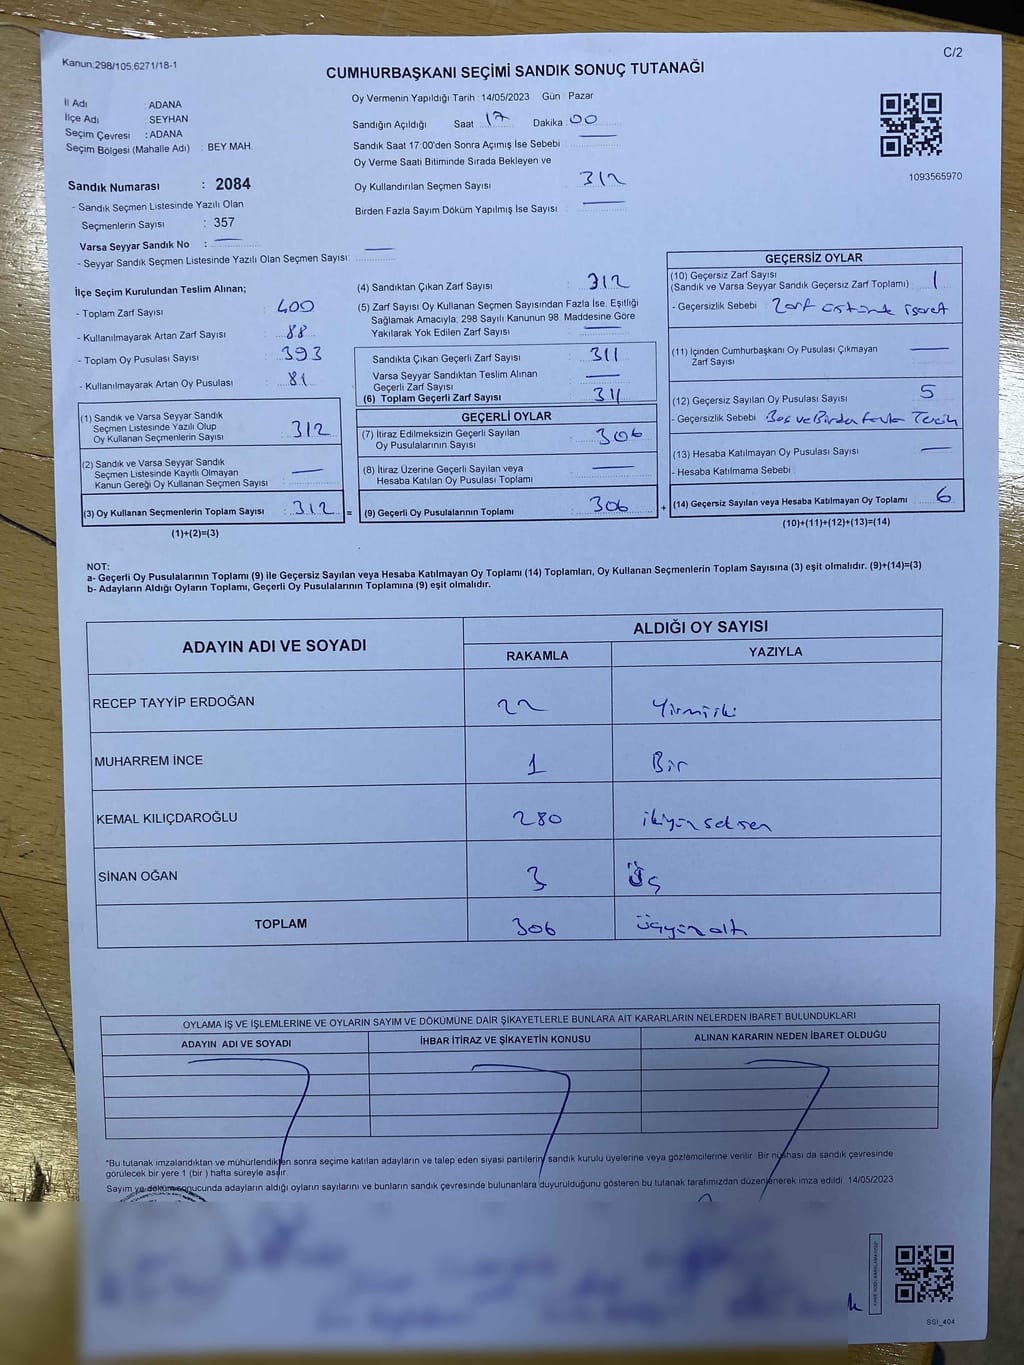 Kanun:298/105,6271/18-1
C/2
CUMHURBAŞKANI SEÇİMİ SANDIK SONUÇ TUTANAĞI
İl Adı : ADANA
İlçe Adı : SEYHAN
Seçim Çevresi : ADANA
Seçim Bölgesi (Mahalle Adı) : BEY MAH.
Sandık Numarası : 2084
- Sandık Seçmen Listesinde Yazılı Olan
Seçmenlerin Sayısı : 357
Varsa Seyyar Sandık No : —
- Seyyar Sandık Seçmen Listesinde Yazılı Olan Seçmen Sayısı: —
Oy Vermenin Yapıldığı Tarih : 14/05/2023 Gün : Pazar
Sandığın Açıldığı Saat : 17 Dakika : 00
Sandık Saat 17:00'den Sonra Açımış İse Sebebi : —
Oy Verme Saati Bitiminde Sırada Bekleyen ve
Oy Kullandırılan Seçmen Sayısı : 312
Birden Fazla Sayım Döküm Yapılmış İse Sayısı : —
1093565970
İlçe Seçim Kurulundan Teslim Alınan;
- Toplam Zarf Sayısı : 400
- Kullanılmayarak Artan Zarf Sayısı : 88
- Toplam Oy Pusulası Sayısı : 393
- Kullanılmayarak Artan Oy Pusulası : 81
(1) Sandık ve Varsa Seyyar Sandık
Seçmen Listesinde Yazılı Olup
Oy Kullanan Seçmenlerin Sayısı : 312
(2) Sandık ve Varsa Seyyar Sandık
Seçmen Listesinde Kayıtlı Olmayan
Kanun Gereği Oy Kullanan Seçmen Sayısı : —
(3) Oy Kullanan Seçmenlerin Toplam Sayısı : 312 =
(1)+(2)=(3)
(4) Sandıktan Çıkan Zarf Sayısı : 312
(5) Zarf Sayısı Oy Kullanan Seçmen Sayısından Fazla İse, Eşitliği
Sağlamak Amacıyla, 298 Sayılı Kanunun 98. Maddesine Göre
Yakılarak Yok Edilen Zarf Sayısı : —
Sandıkta Çıkan Geçerli Zarf Sayısı : 311
Varsa Seyyar Sandıktan Teslim Alınan
Geçerli Zarf Sayısı : —
(6) Toplam Geçerli Zarf Sayısı : 311
GEÇERLİ OYLAR
(7) İtiraz Edilmeksizin Geçerli Sayılan
Oy Pusulalarının Sayısı : 306
(8) İtiraz Üzerine Geçerli Sayılan veya
Hesaba Katılan Oy Pusulası Toplamı : —
(9) Geçerli Oy Pusulalarının Toplamı : 306 +
GEÇERSİZ OYLAR
(10) Geçersiz Zarf Sayısı
(Sandık ve Varsa Seyyar Sandık Geçersiz Zarf Toplamı) : 1
- Geçersizlik Sebebi : Zarf üstünde işaret
(11) İçinden Cumhurbaşkanı Oy Pusulası Çıkmayan
Zarf Sayısı : —
(12) Geçersiz Sayılan Oy Pusulası Sayısı : 5
- Geçersizlik Sebebi : Boş ve Birden fazla Tercih
(13) Hesaba Katılmayan Oy Pusulası Sayısı : —
- Hesaba Katılmama Sebebi :
(14) Geçersiz Sayılan veya Hesaba Katılmayan Oy Toplamı : 6
(10)+(11)+(12)+(13)=(14)
NOT:
a- Geçerli Oy Pusulalarının Toplamı (9) ile Geçersiz Sayılan veya Hesaba Katılmayan Oy Toplamı (14) Toplamları, Oy Kullanan Seçmenlerin Toplam Sayısına (3) eşit olmalıdır. (9)+(14)=(3)
b- Adayların Aldığı Oyların Toplamı, Geçerli Oy Pusulalarının Toplamına (9) eşit olmalıdır.
ADAYIN ADI VE SOYADI ALDIĞI OY SAYISI
RAKAMLA YAZIYLA
RECEP TAYYİP ERDOĞAN 22 Yirmiiki
MUHARREM İNCE 1 Bir
KEMAL KILIÇDAROĞLU 280 ikiyüzseksen
SİNAN OĞAN 3 Üç
TOPLAM 306 üçyüzaltı
OYLAMA İŞ VE İŞLEMLERİNE VE OYLARIN SAYIM VE DÖKÜMÜNE DAİR ŞİKAYETLERLE BUNLARA AİT KARARLARIN NELERDEN İBARET BULUNDUKLARI
ADAYIN ADI VE SOYADI İHBAR İTİRAZ VE ŞİKAYETİN KONUSU ALINAN KARARIN NEDEN İBARET OLDUĞU
*Bu tutanak imzalandıktan ve mühürlendikten sonra seçime katılan adayların ve talep eden siyasi partilerin sandık kurulu üyelerine veya gözlemcilerine verilir. Bir nüshası da sandık çevresinde
görülecek bir yere 1 (bir ) hafta süreyle asılır.
Sayım ve döküm sonucunda adayların aldığı oyların sayılarını ve bunların sandık çevresinde bulunanlara duyurulduğunu gösteren bu tutanak tarafımızdan düzenlenerek imza edildi. 14/05/2023
SSI_404